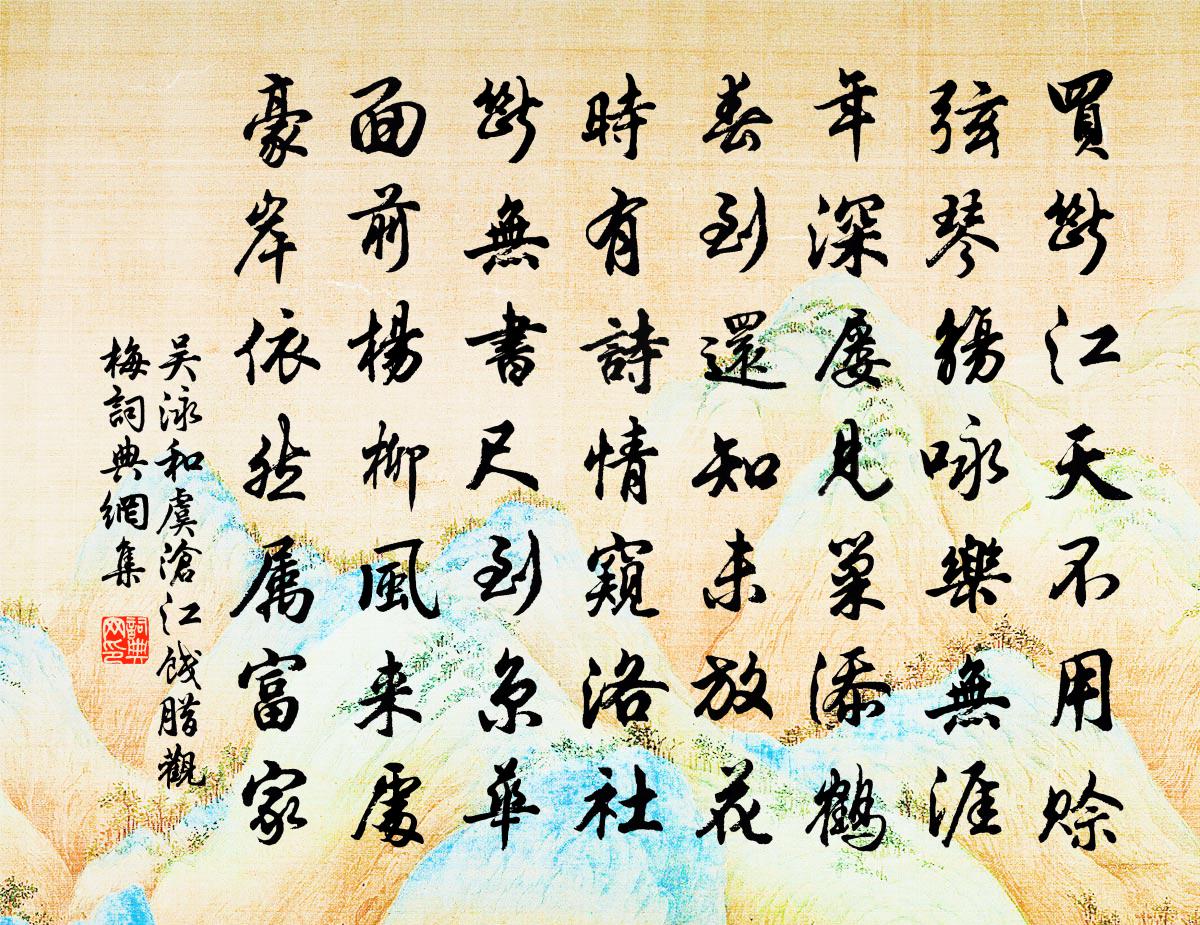 買斷江天不用賒
弦琴觴咏樂無涯
年深屢見巢添鶴
春到還知未放花
時有詩情窺洛社
斷無書尺到京華
面前楊柳風來處
豪岸依然厲富家
吴泳和虞滄江餞腊觀
梅詞典網集
詞典
网印